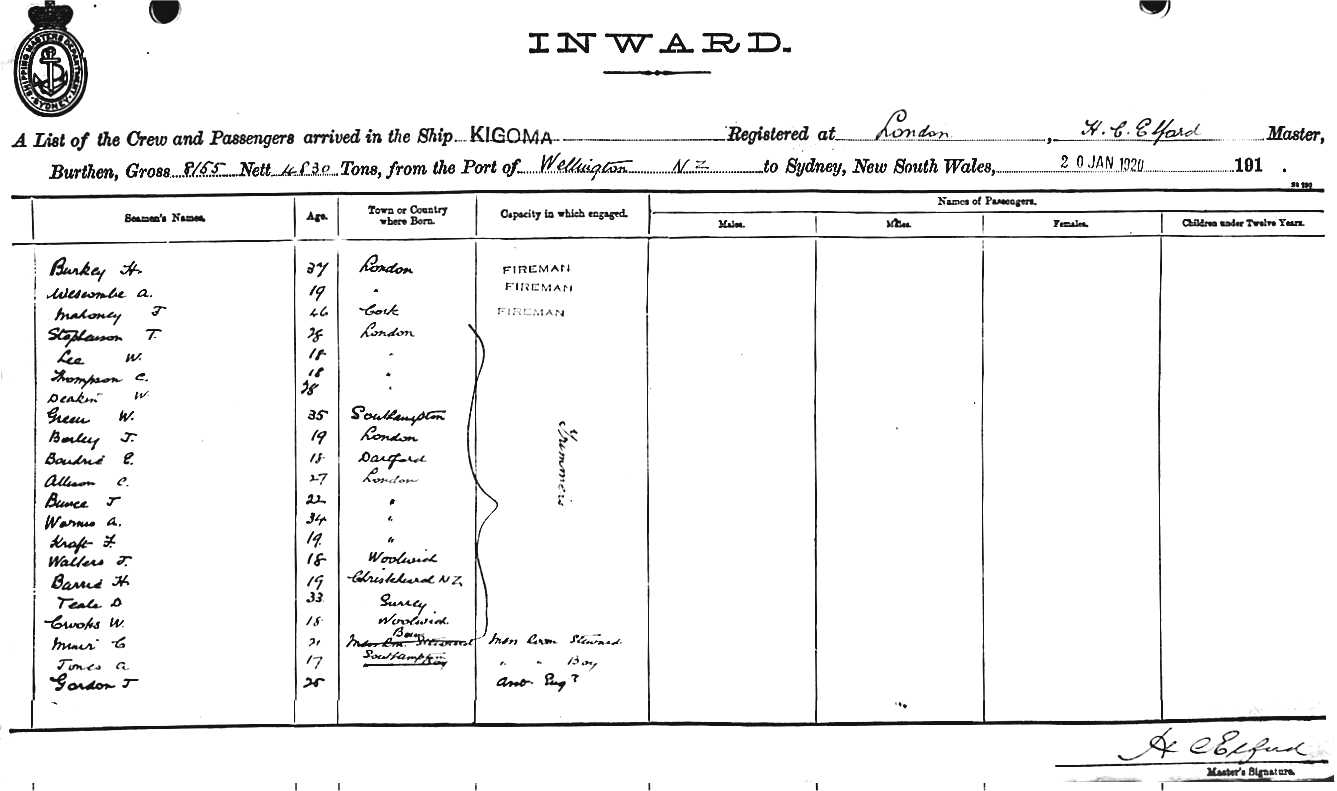 SHIPPING MASTERS DEPARTMENT SYDNEY
INWARD.
A List of the Crew and Passengers arrived in the Ship KIGOMA Registered at London, H. C. Elford Master,
Burthen, Gross 8155 Nett 4830 Tons, from the Port of Wellington NZ to Sydney, New South Wales, 20 JAN 1920 191 .
Seamen's Names. Age. Town or Country where Born. Capacity in which engaged. Names of Passengers.
Males. Males. Females. Children under Twelve Years.
Burkey H. 37 London FIREMAN
Wescombe A. 19 " FIREMAN
Mahoney J 46 Cork FIREMAN
Stephenson T. 28 London
Lee W. 18 "
Thompson C. 18 "
Deakin W 28 "
Green W. 35 Southampton
Barley J. 19 London
Boudrie E. 18 Dartford
Trimmers
Allison C. 27 London
Bunce J 22 "
Warnes A. 34 "
Kraft F. 19. "
Walters J. 18 Woolwich
Barrie H 19 Christchurch NZ
Teale D 33 Surrey.
Crooks W. 18 Woolwich.
Muir C 21 Mess Rm. Steward Mess Room Steward
Jones A 17 Southampton " " Boy
Gordon J 25 Asst Engr
H C Elford
Master's Signature.